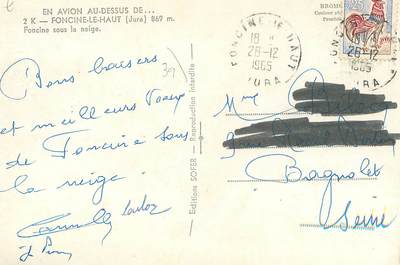 EN AVION AU-DESSUS DE...
2 K — FONCINE-LE-HAUT (Jura) 869 m.
Foncine sous la neige.
BROM
39
Bons baisers
et meilleurs Voeux
de Foncine sous
la neige.
Editions SOFER - Reproduction interdite
FONCINE-LE-HAUT
18 H
28-12
1965
JURA
28-12
1965
JURA
Mme
Bagnolet
Seine